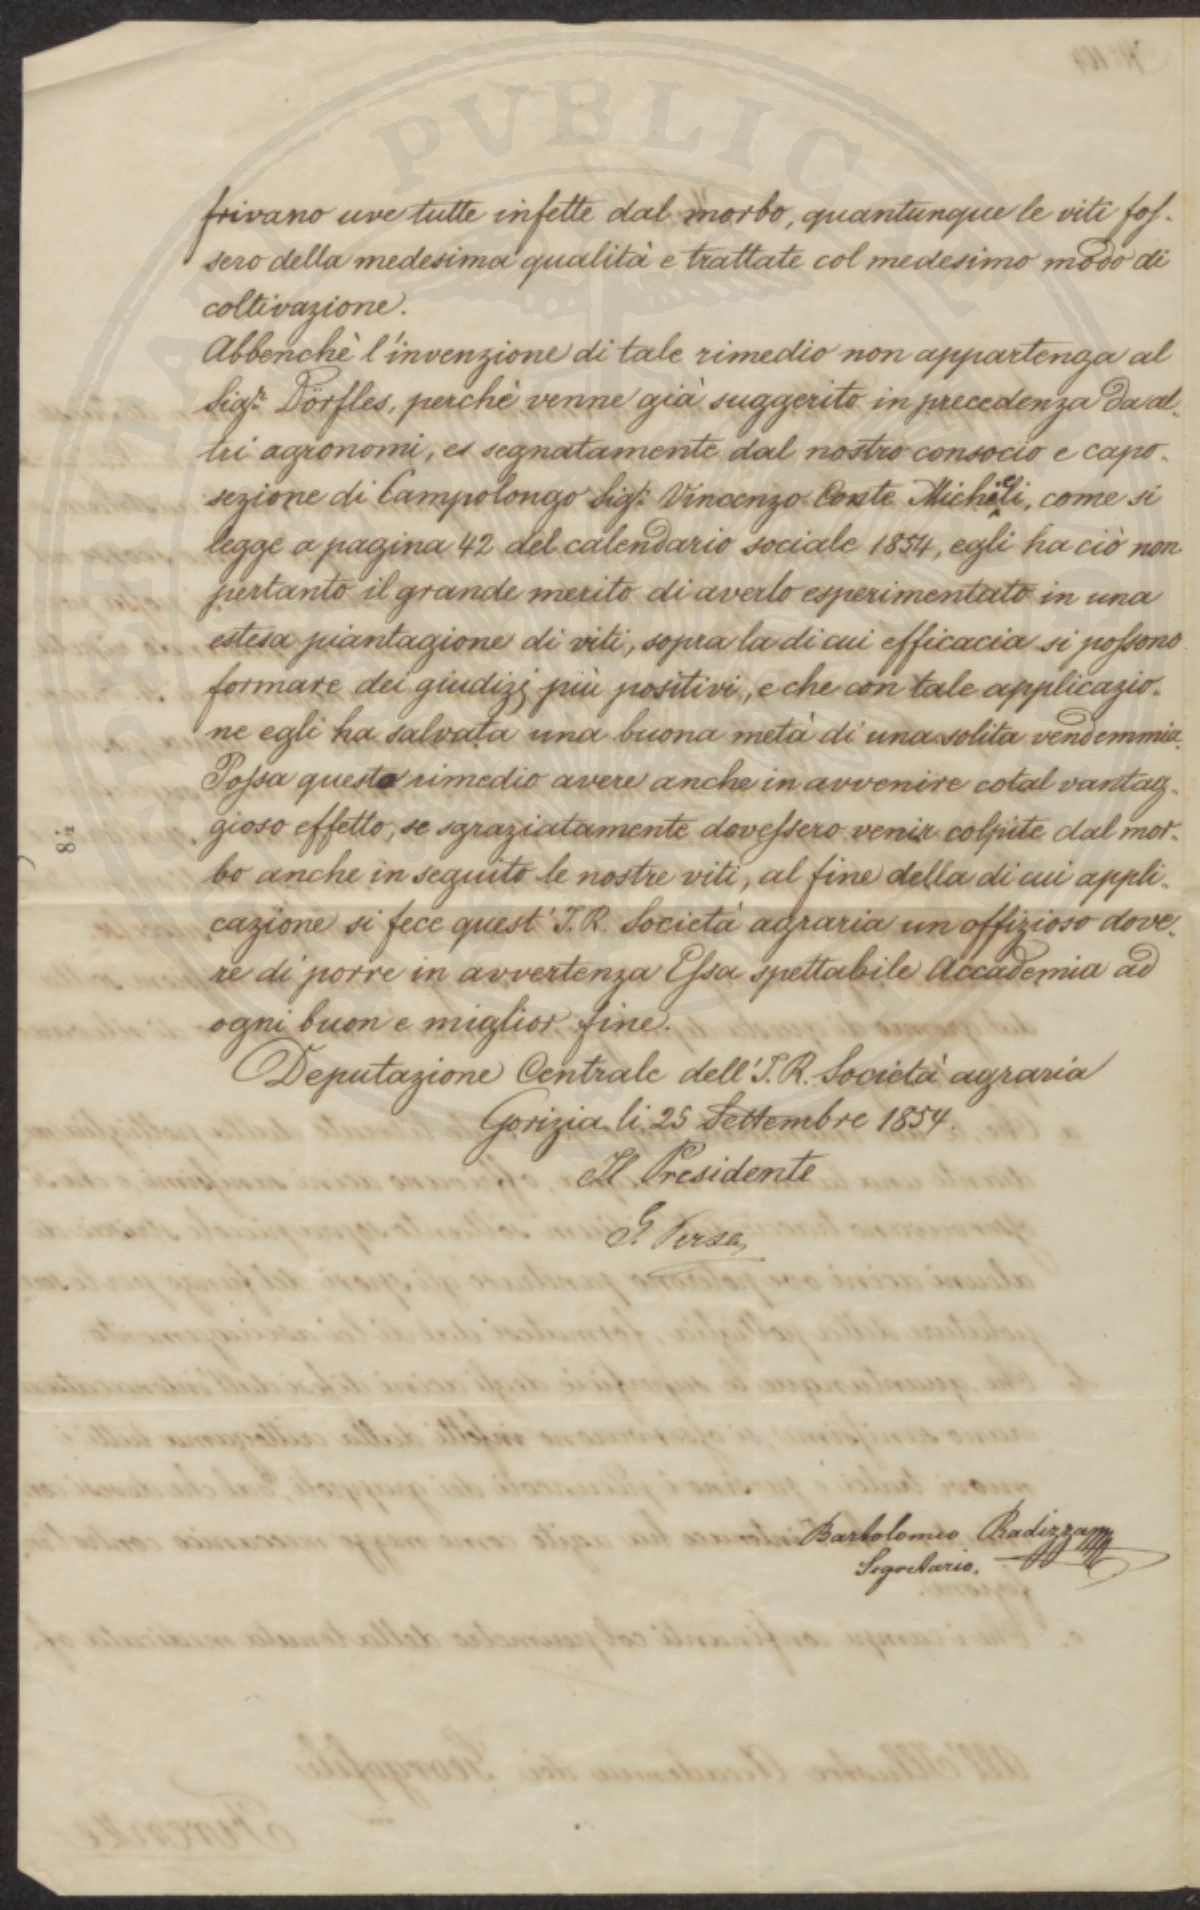 frivano uve tutte infette dal morbo, quantunque le viti fos-
sero della medesima qualità e trattate col medesimo modo di
coltivazione.
Abbenchè l'invenzione di tale rimedio non appartenga al
Sigr. Dörfles, perchè venne già suggerito in precedenza da al-
tri agronomi, es segnatamente dal nostro consocio e capo-
sezione di Campolongo Sigr. Vincenzo Conte Micheli, come si
legge a pagina 42 del calendario sociale 1854, egli ha ciò non
pertanto il grande merito di averlo esperimentato in una
estesa piantagione di viti, sopra la di cui efficacia si possono
formare dei giudizj più positivi, e che con tale applicazio-
ne egli ha salvata una buona metà di una solita vendemmia.
Possa questo rimedio avere anche in avvenire cotal vantag-
gioso effetto, se sgraziatamente dovessero venir colpite dal mor-
bo anche in seguito le nostre viti, al fine della di cui appli-
cazione si fece quest' I. R. Società agraria un offizioso dove-
re di porre in avvertenza Essa spettabile Accademia ad
ogni buon e miglior fine.
Deputazione Centrale dell' I. R. Società agraria
Gorizia li 25 Settembre 1854.
Il Presidente
G. Persa
Bartolomeo Radizza
Segretario.